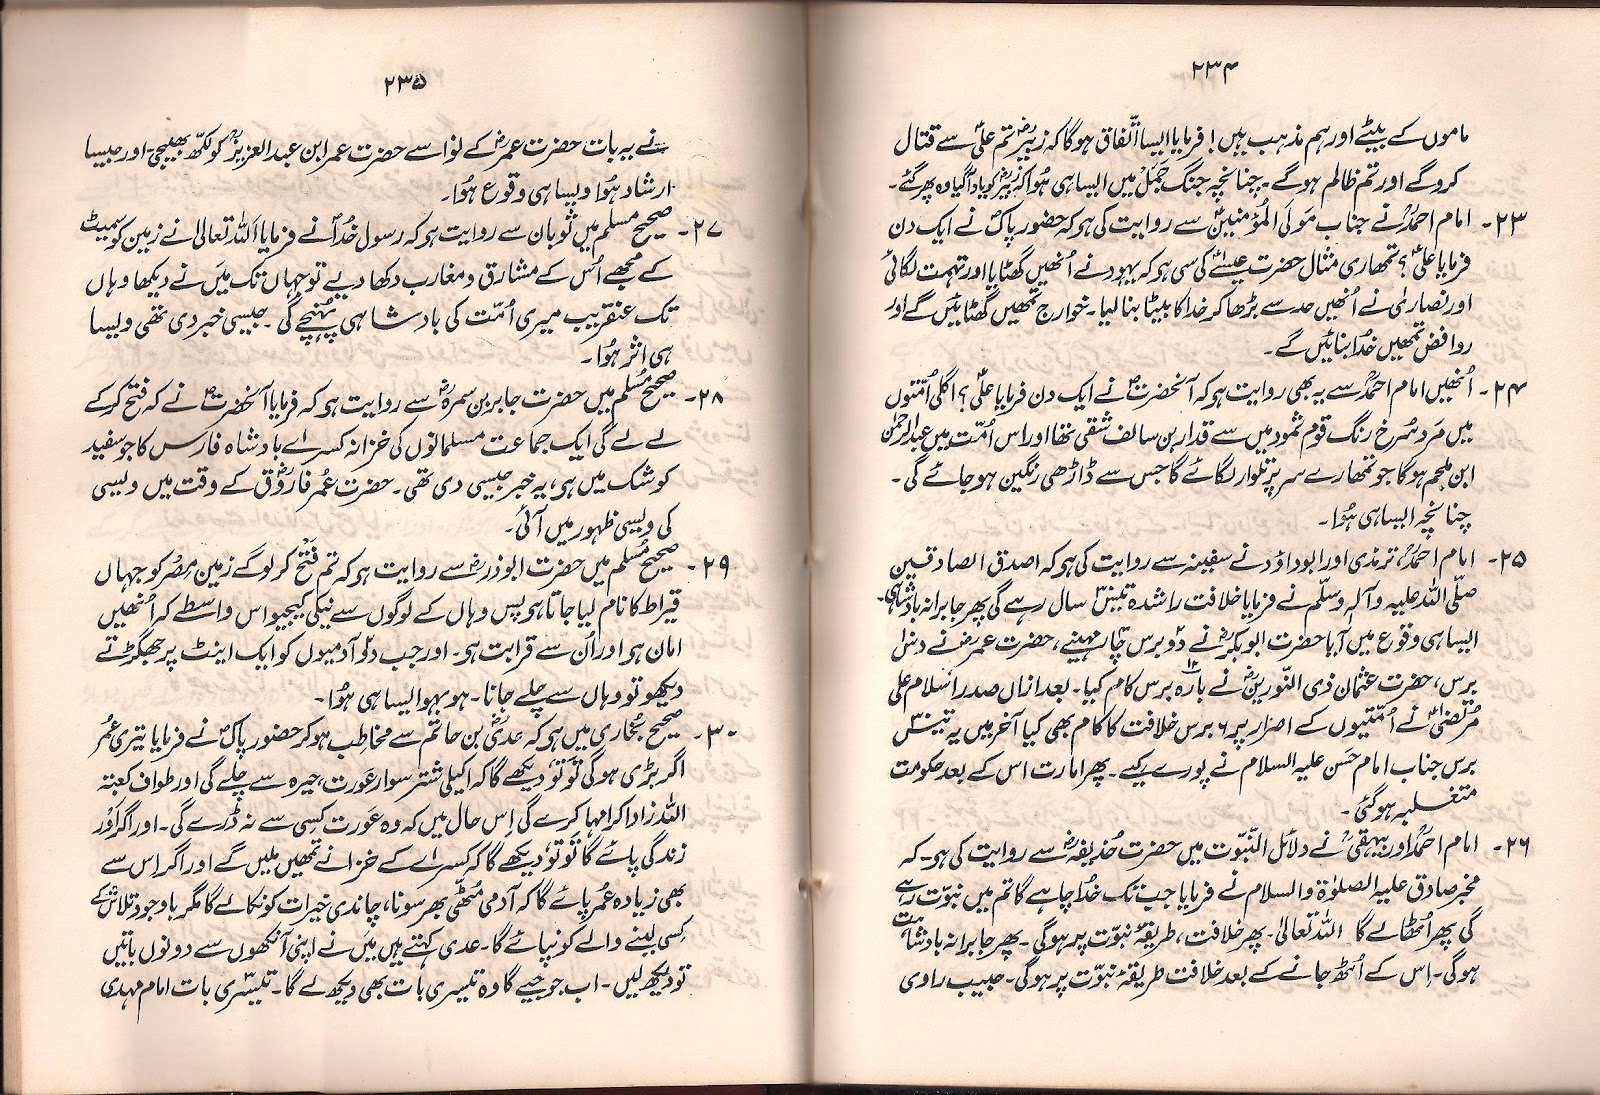 ۲۳۴
ماموں کے بیٹے اور ہم مذہب ہیں! فرمایا ایسا اتّفاق ہوگا کہ زبیرؓ تم علیؓ سے قتال
کروگے اور تم ظالم ہوگے۔ چنانچہ جنگ جَمَل میں ایسا ہی ہُوا کہ زبیرؓ کو یاد آگیا وہ پھر گئے۔
۲۳۔ امام احمدؒ نے جناب مَولَی المُؤمنینؑ سے روایت کی ہو کہ حضور پاکؐ نے ایک دن
فرمایا علیؑ؟ تمھاری مثال حضرت عیسےٰؑ کی سی ہو کہ یہود نے اُنھیں گھٹایا اور تہمت لگائی
اور نصاریٰ نے اُنھیں حد سے بڑھا کر خدا کا بیٹا بنا لیا۔ خوارج تمھیں گھٹائیں گے اور
روافض تمھیں خُدا بنائیں گے۔
۲۴۔ اُنھیں امام احمدؒ سے یہ بھی روایت ہو کہ آنحضرتؐ نے ایک دن فرمایا علیؑ؟ اگلی اُمّتوں
میں مَرد سُرخ رنگ قوم ثمود میں سے قدار بن سالف شقی تھا اور اس اُمّت میں عبدالرحمٰن
ابن ملجم ہوگا جو تمھارے سر پر تلوار لگائے گا جس سے ڈاڑھی رنگین ہو جائے گی۔
چنانچہ ایسا ہی ہُوا۔
۲۵۔ امام احمدؒ، ترمذی اور ابو داؤد نے سفینہ سے روایت کی ہو کہ اصدق الصادقین
صلّی اللہ علیہ وآلہٖ وسلّم نے فرمایا خلافت راشدہ تیس سال رہے گی پھر جابرانہ بادشاہی۔
ایسا ہی وقوع میں آیا حضرت ابو بکرؓ نے دو برس چار مہینے، حضرت عمرؓ نے دس
برس، حضرت عثمان ذی النّورینؓ نے بارہ ۱۲ برس کام کیا۔ بعد ازاں صدر اسلام علی
مُرتضیٰؑ نے اُمّتیوں کے اصرار پر ۶ برس خلافت کا کام بھی کیا آخر میں یہ تیس
برس جناب امام حَسن علیہ السلام نے پورے کیے۔ پھر امارت اس کے بعد حکومت
متغلبہ ہو گئی۔
۲۶۔ امام احمدؒ اور بیہقیؒ نے دلائل النّبوّت میں حضرت حُذیفہؓ سے روایت کی ہو۔ کہ
مخبر صادق علیہ الصلوٰۃ والسلام نے فرمایا جب تک خُدا چاہے گا تم میں نبوّت رہے
گی پھر اُٹھا لے گا اللہ تعالیٰ۔ پھر خلافت، طریقۂ نبوّت پر ہوگی۔ پھر جابرانہ بادشاہت
ہوگی۔ اِس کے اُٹھ جانے کے بعد خلافت طریقۂ نبوّت پر ہوگی۔ حبیب راوی
۲۳۵
نے یہ بات حضرت عمرؓ کے نواسے حضرت عمر ابن عبدالعزیزؒ کو لکھ بھیجی۔ اور جیسا
ارشاد ہُوا ویسا ہی وقوع ہُوا۔
۲۷۔ صحیح مسلم میں ثوبان سے روایت ہو کہ رسول خُداؐ نے فرمایا اللہ تعالیٰ نے زمین کو سمیٹ
کے مجھے اُس کے مشارق و مغارب دکھا دیے تو جہاں تک میں نے دیکھا وہاں
تک عنقریب میری اُمّت کی بادشاہی پہنچے گی۔ جیسی خبر دی تھی ویسا
ہی اثر ہُوا۔
۲۸۔ صحیح مُسلم میں حضرت جابر بن سمرہؓ سے روایت ہو کہ فرمایا آنحضرتؐ نے کہ فتح کر کے
لے لے گی ایک جماعت مسلمانوں کی خزانہ کسرےٰ بادشاہ فارس کا جو سفید
کوشک میں ہو، یہ خبر جیسی دی تھی۔ حضرت عُمر فاروقؓ کے وقت میں ویسی
کی ویسی ظہور میں آئی۔
۲۹۔ صحیح مُسلم میں حضرت ابوذرؓ سے روایت ہو کہ تم فَتح کر لوگے زمین مِصر کو جہاں
قیراط کا نام لیا جاتا ہو پس وہاں کے لوگوں سے نیکی کیجیو اس واسطے کہ اُنھیں
امان ہو اور اُن سے قرابت ہو۔ اور جب دو آدمیوں کو ایک اینٹ پر جھگڑتے
دیکھو تو وہاں سے چلے جانا۔ ہو بہو ایسا ہی ہُوا۔
۳۰۔ صحیح بُخاری میں ہو کہ عدیؓ بن حاتم سے مخاطب ہو کر حضور پاکؐ نے فرمایا تیری عُمر
اگر بڑی ہوگی تو تو، دیکھے گا کہ اکیلی شتر سوار عورت، حیرہ سے چلے گی اور طواف کعبتہ
اللہ زاد اکرامہا کرے گی اِس حال میں کہ وہ عورت کِسی سے نہ ڈرے گی۔ اور اگر اَور
زندگی پائے گا تو تو، دیکھے گا کہ کسرےٰ کے خزانے تمھیں ملیں گے اور اگر اس سے
بھی زیادہ عمر پائے گا کہ آدمی مُٹھی بھر سونا، چاندی خیرات کو نکالے گا مگر باوجود تلاش کے
کِسی لینے والے کو نہ پائے گا۔ عدی کہتے ہیں میں نے اپنی آنکھوں سے دونوں باتیں
تو دیکھ لیں۔ اب جو جیے گا وہ تیسری بات بھی دیکھ لے گا۔ تیسری بات امام مہدی